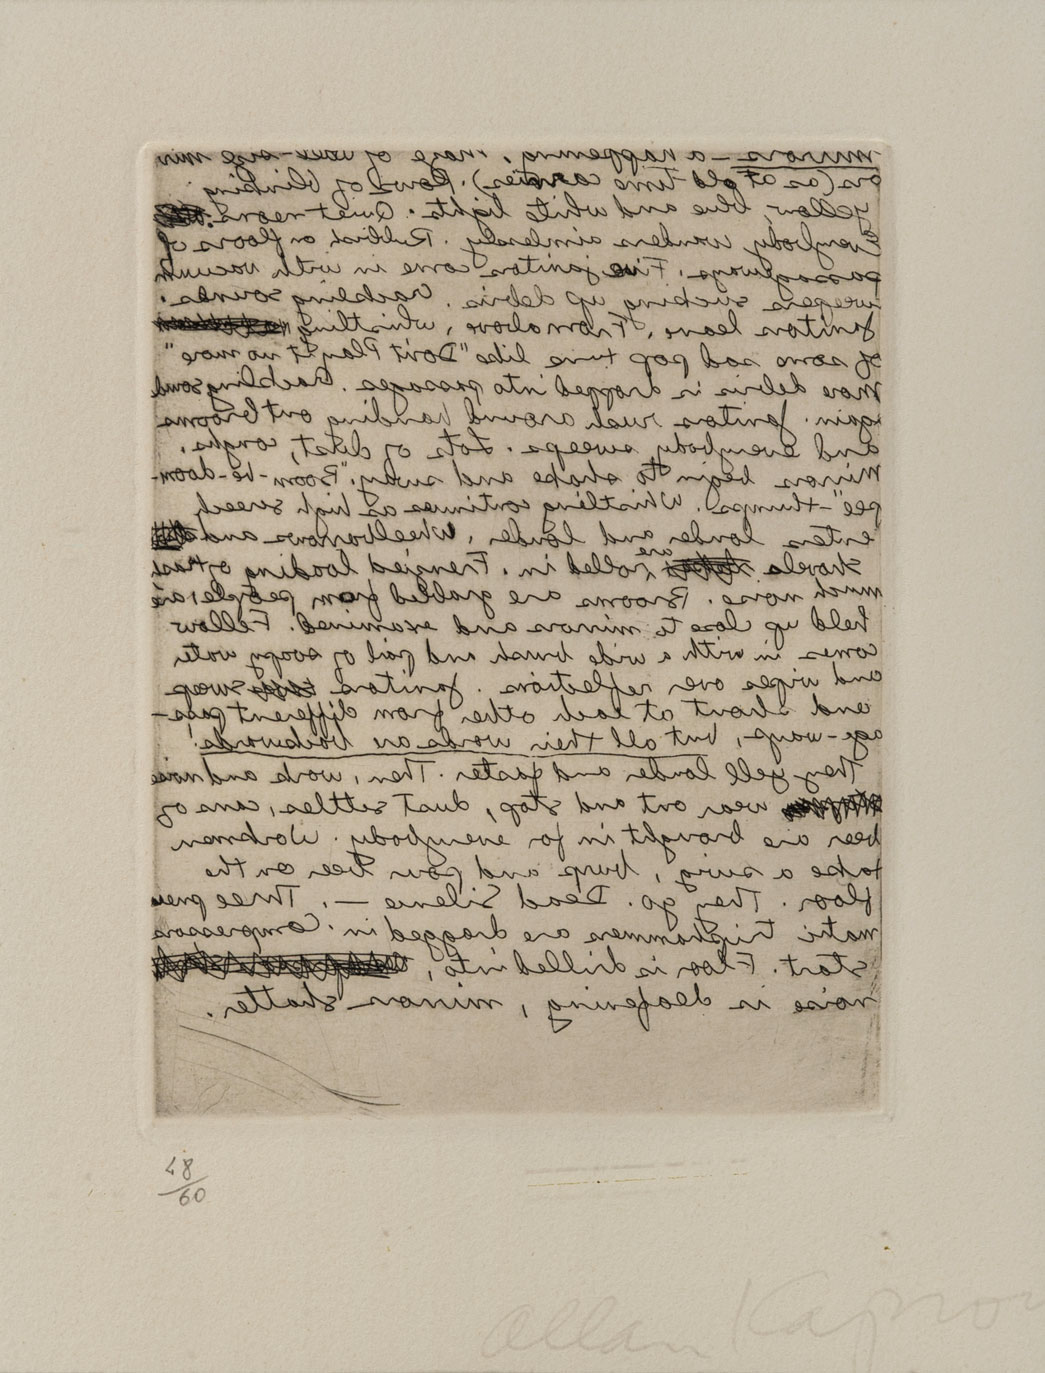 mirrors – a happening. Maze of wall-size mirr
ors (as at old time carnies). Rows of blinking
yellow, blue and white lights. Quiet neons.
Everybody wanders aimlessly. Rubbish on floors of
passageways. Five janitors come in with vacuum
sweepers sucking up debris. Crackling sounds.
Janitors leave. From above, whistling
of some sad pop tune like "Don't Play It no more"
More debris is dropped into passages. Crackling sound
again. Janitors rush around handing out brooms
and everybody sweeps. Lots of dust, coughs.
Mirrors begin to shake and sway. "Boom-be-doom-
pee"-thumps. Whistling continues as high screech
enters louder and louder. Wheelbarrows and
shovels are rolled in. Frenzied loading of trash
much noise. Brooms are grabbed from people; are
held up close to mirrors and examined. Fellow
comes in with a wide brush and pail of soapy water
and wipes over reflections. Janitors sweep
and shout at each other from different pass-
age-ways, but all their words are backwards!
They yell louder and faster. Then, work and noise
wear out and stop, dust settles, cans of
beer are brought in for everybody. Workmen
take a swig, burp and pour beer on the
floor. They go. Dead Silence –. Three pneu
matic triphammers are dragged in. Compressors
start. Floor is drilled into,
noise is deafening, mirrors shatter.
48/60
Allan Kaprow